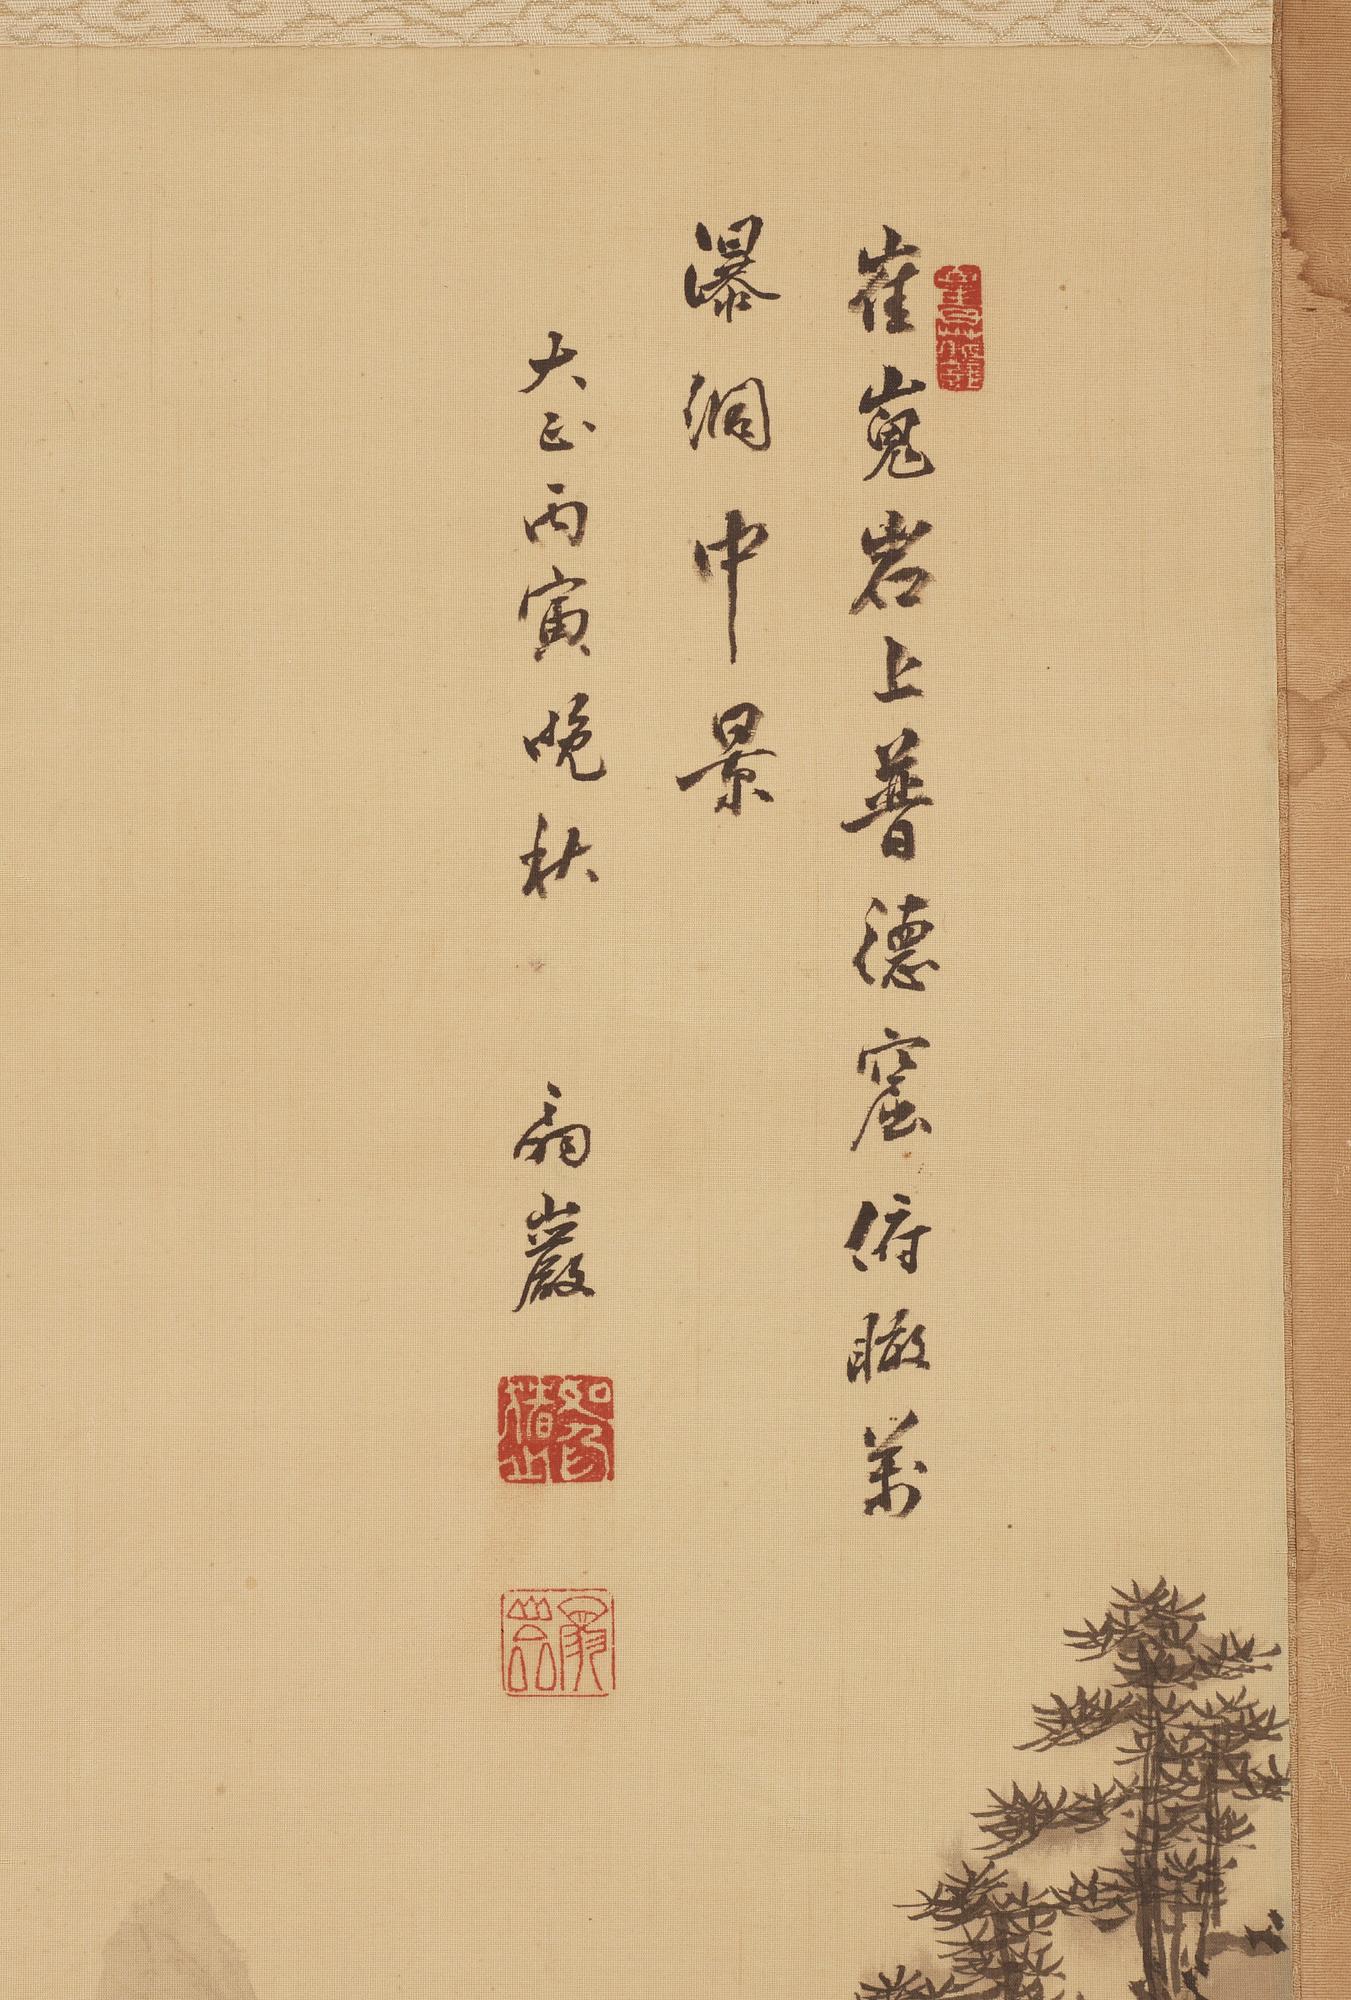 崔嵬岩上普德窟俯瞰萬
瀑洞中景
大正丙寅晩秋　扇巖